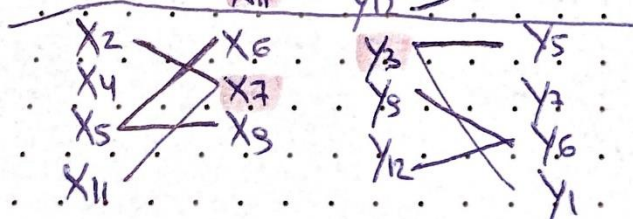 X2 X6 Y3 Y5
X4 X7 Y9 Y7
X5 X9 Y12 Y6
X11 Y1